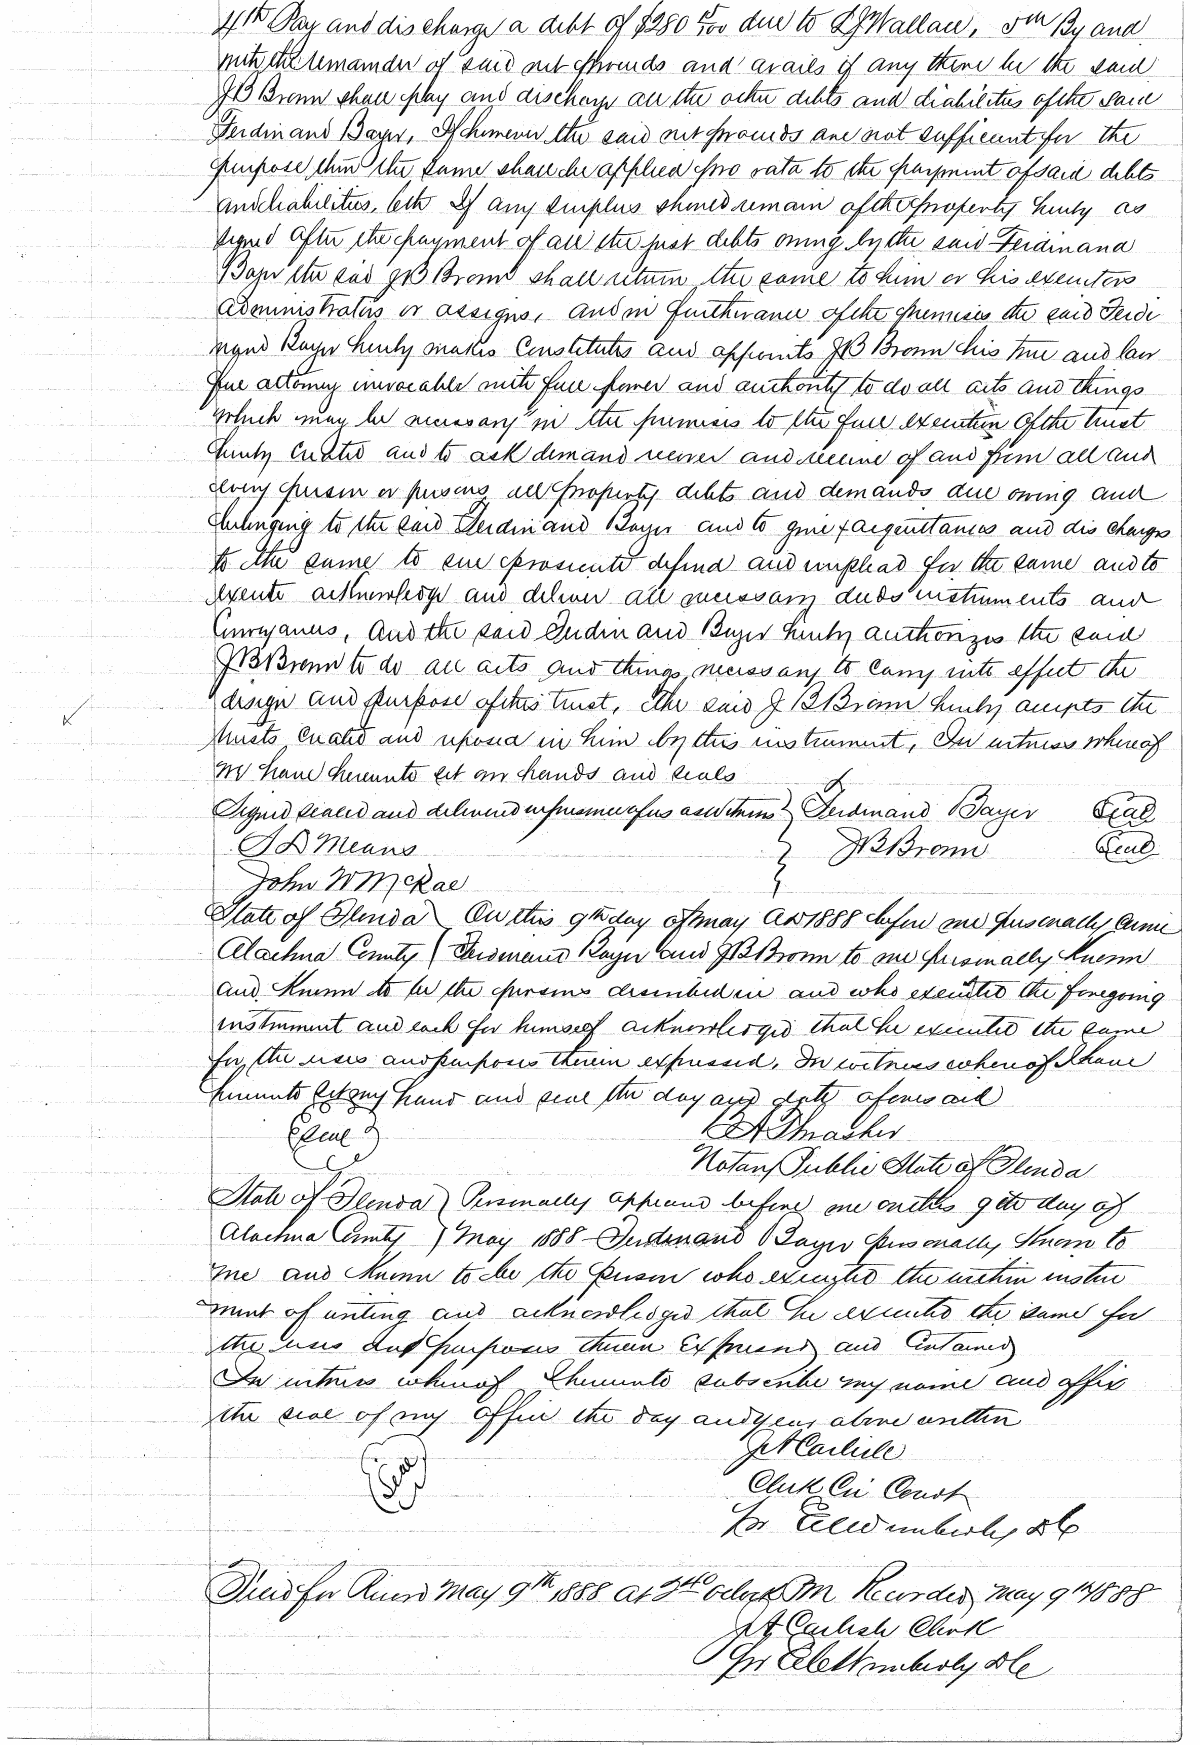 4th Pay and discharge a debt of $280 due to Wallace, 5th By and
with the remainder of said net proceeds and avails if any there be the said
J B Brown shall pay and discharge all the other debts and liabilities of the said
Ferdinand Bayer, If however the said net proceeds are not sufficient for the
purpose then the same shall be applied pro rata to the payment of said debts
and liabilities. 6th If any surplus should remain of the property hereby as
signed after the payment of all the just debts owing by the said Ferdinand
Bayer the said J B Brown shall return the same to him or his executors
administrators or assigns, and in furtherance of the premises the said Ferdi
nand Bayer hereby makes Constitutes and appoints J B Brown his true and law
ful attorney irrevocable with full power and authority to do all acts and things
which may be necessary in the premises to the full execution of the trust
hereby created and to ask demand recover and receive of and from all and
every person or persons all property debts and demands due owing and
belonging to the said Ferdinand Bayer and to give acquittances and discharges
to the same to sue prosecute defend and implead for the same and to
execute acknowledge and deliver all necessary deeds instruments and
Conveyances, And the said Ferdinand Bayer hereby authorizes the said
J B Brown to do all acts and things necessary to carry into effect the
design and purpose of this trust, The said J B Brown hereby accepts the
trusts created and reposed in him by this instrument, In witness whereof
we have hereunto set our hands and seals
Signed sealed and delivered in presence of us as witness } Ferdinand Bayer Seal
J D Means J B Brown Seal
John W McRae
State of Florida } On this 9th day of May AD 1888 before me personally came
Alachua County } Ferdinand Bayer and J B Brown to me personally known
and known to be the persons described in and who executed the foregoing
instrument and each for himself acknowledged that he executed the same
for the uses and purposes therein expressed. In witness whereof I have
hereunto set my hand and seal the day and date aforesaid
Seal Thrasher
Notary Public State of Florida
State of Florida } Personally appeared before me on this 9th day of
Alachua County } May 1888 Ferdinand Bayer personally known to
me and known to be the person who executed the within instru
ment of writing and acknowledged that he executed the same for
the uses and purposes therein Expressed and Contained
In witness whereof I hereunto subscribe my name and affix
the seal of my office the day and year above written
J A Carlisle
Seal Clerk Cir Court
Pr Wimberly DC
Filed for Record May 9th 1888 at 3 oclock P M. Recorded May 9th 1888
J A Carlisle Clerk
Pr Wimberly DC